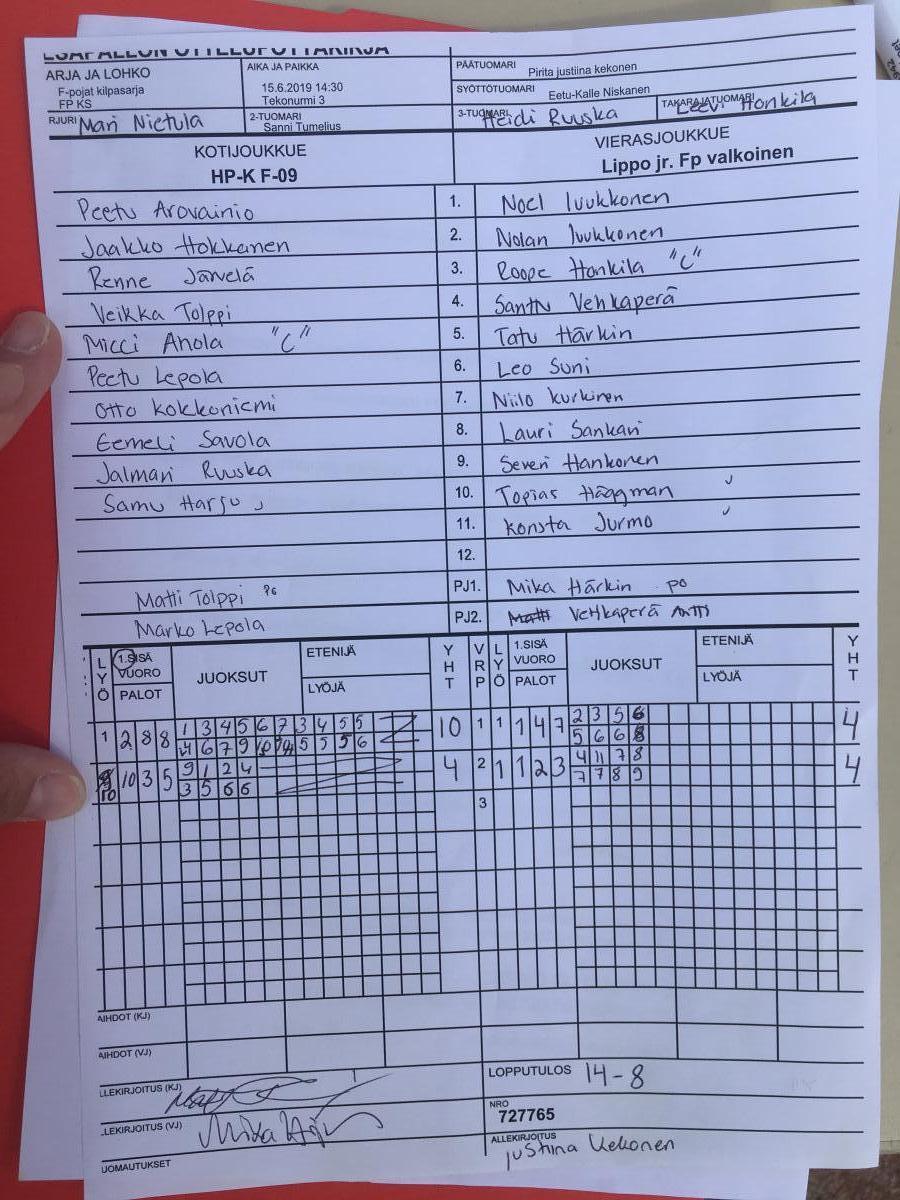 PESÄPALLON OTTELUPÖYTÄKIRJA
ARJA JA LOHKO
F-pojat kilpasarja
FP KS
AIKA JA PAIKKA
15.6.2019 14:30
Tekonurmi 3
PÄÄTUOMARI Pirita justiina kekonen
SYÖTTÖTUOMARI Eetu-Kalle Niskanen
RJURI Mari Nietula
2-TUOMARI Sanni Tumelius
3-TUOMARI Heidi Ruuska
TAKARAJATUOMARI Leevi Honkila
KOTIJOUKKUE
HP-K F-09
VIERASJOUKKUE
Lippo jr. Fp valkoinen
Peetu Arovainio 1. Noel luukkonen
Jaakko Hokkanen 2. Nolan luukkonen
Renne Järvelä 3. Roope Honkila "C"
Veikka Tolppi 4. Santtu Vehkaperä
Micci Ahola "C" 5. Tatu Härkin
Peetu Lepola 6. Leo Suni
Otto kokkoniemi 7. Niilo kurkinen
Eemeli Savola 8. Lauri Sankari
Jalmari Ruuska 9. Severi Hankonen
Samu Harju J 10. Topias Häggman J
11. Konsta Jurmo J
12.
Matti Tolppi PJ1. Mika Härkin po
Marko Lepola PJ2. Vehkaperä Antti
LYÖ 1.SISÄ VUORO PALOT JUOKSUT ETENIJÄ LYÖJÄ YHT VRP LYÖ 1.SISÄ VUORO PALOT JUOKSUT ETENIJÄ LYÖJÄ YHT
1 2 8 8 1 3 4 5 6 7 3 4 5 5 10 1 1 1 4 7 2 3 5 6 4
4 6 7 9 10 5 5 5 6 5 6 6 8
10 10 3 5 9 1 2 4 4 2 1 1 2 3 4 11 7 8 4
3 5 6 6 7 7 8 9
3
AIHDOT (KJ)
AIHDOT (VJ)
LLEKIRJOITUS (KJ)
LOPPUTULOS 14-8
LLEKIRJOITUS (VJ) Mika
NRO
727765
UOMAUTUKSET
ALLEKIRJOITUS
justiina kekonen